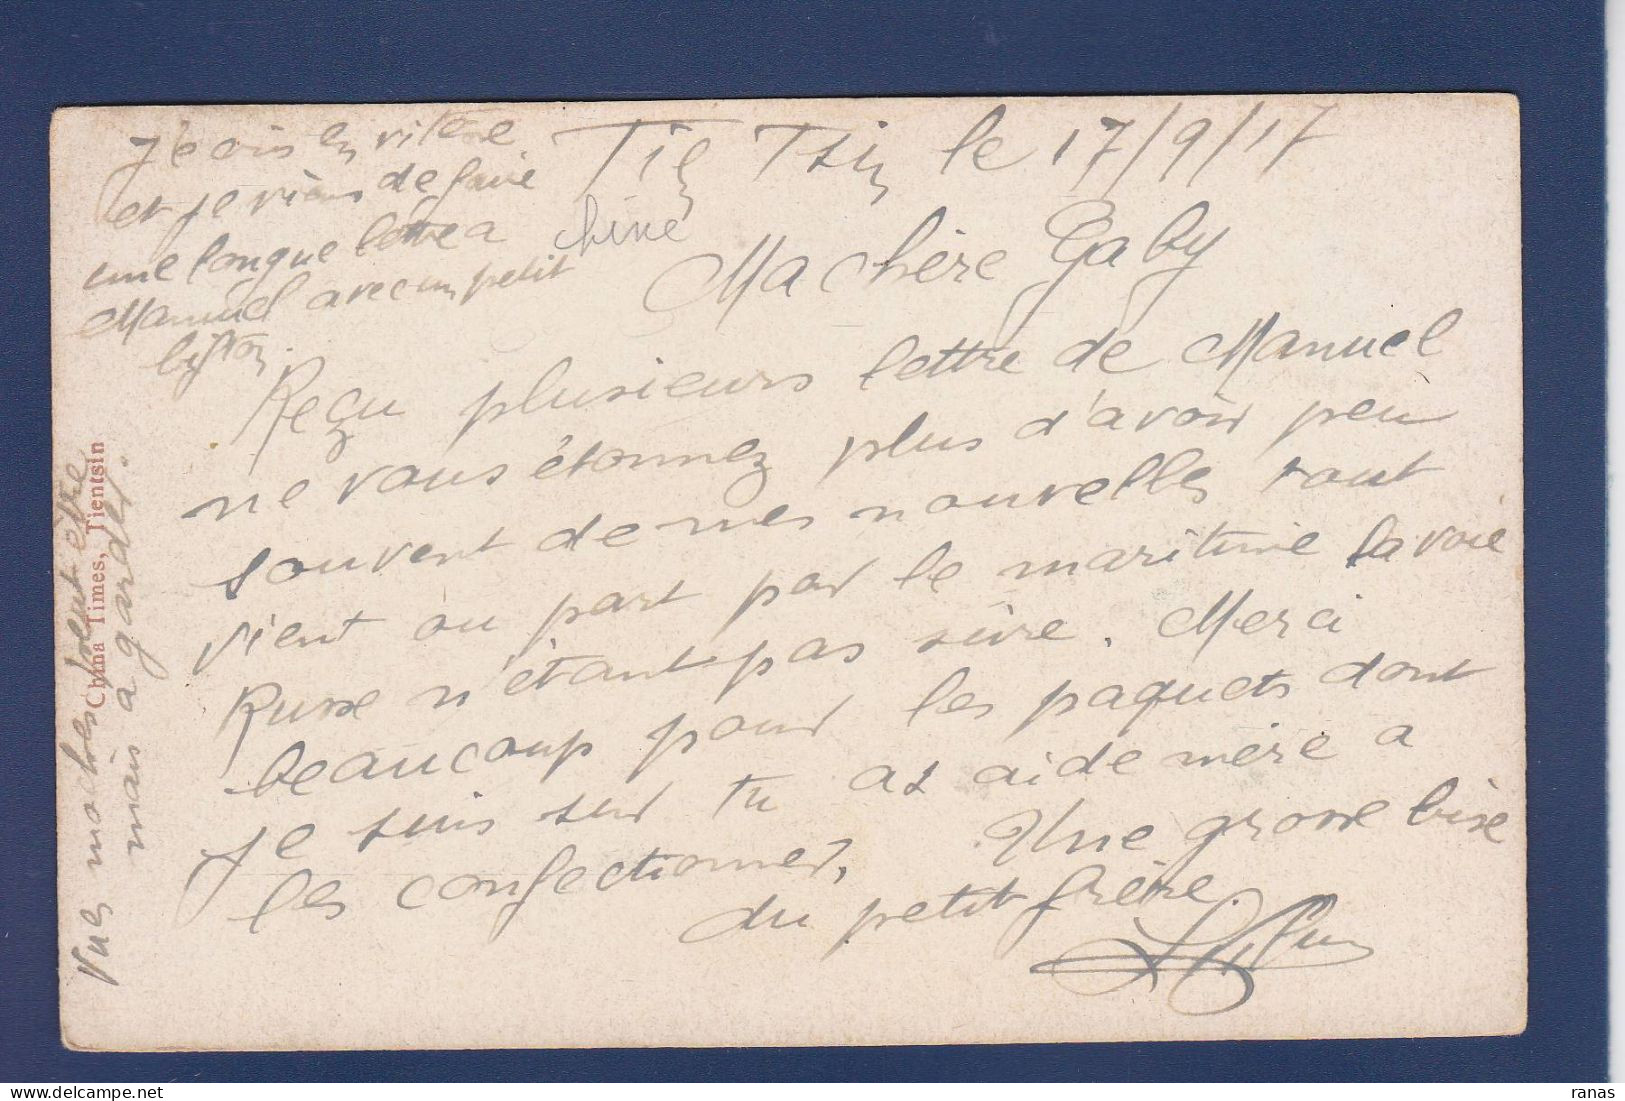 Tien Tsin le 17/9/17
chine
Ma chère Gaby
Reçu plusieurs lettre de Manuel
ne vous étonnez plus d'avoir peu
souvent de mes nouvelles tout
vient ou part par le maritime la voie
Russe n'étant pas sûre. Merci
beaucoup pour les paquets dont
je suis sur tu as aidé mère a
les confectionner. Une grosse bise
du petit frère
j'écris en vitesse
et je viens de faire
une longue lettre a
Manuel avec un petit
Vues moches peut être
mais a garder.
China Times, Tientsin
ranas